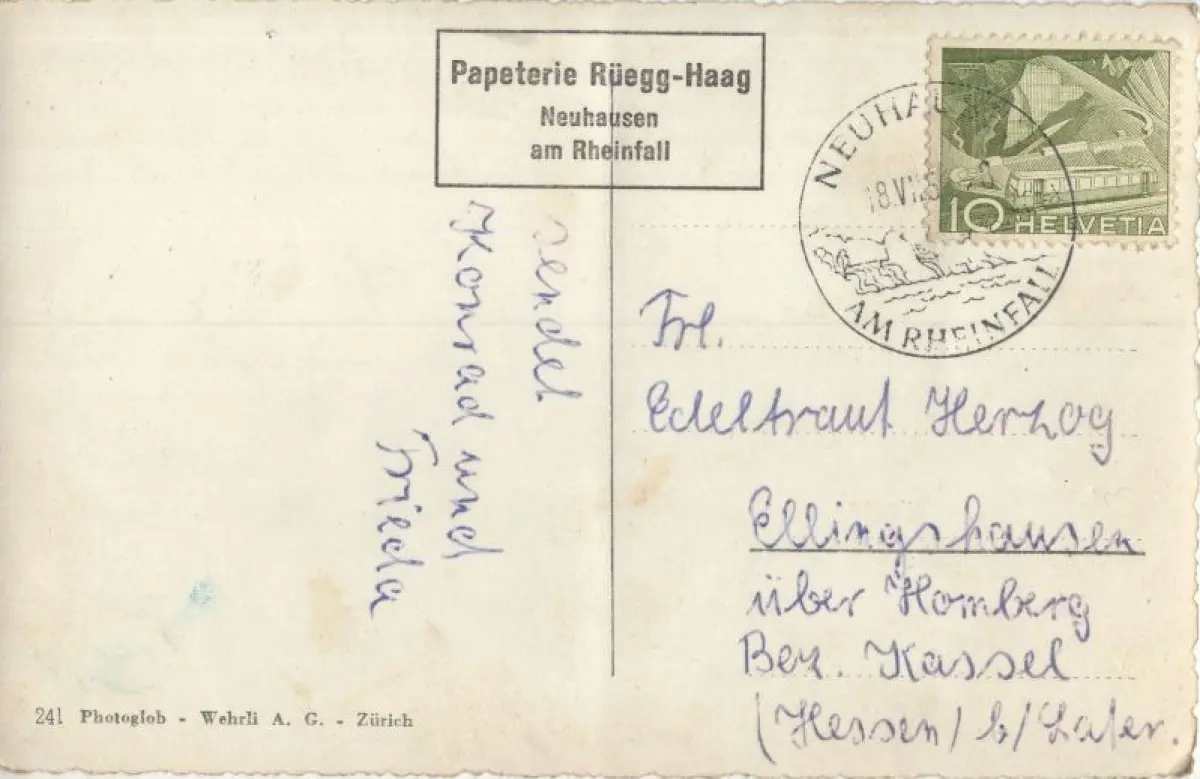 Papeterie Rüegg-Haag
Neuhausen
am Rheinfall
NEUHAU
18 VII 5
AM RHEINFALL
10 HELVETIA
sendet
Konrad und
Frieda
Frl.
Edeltraut Herzog
Ellingshausen
über Homberg
Bez. Kassel
(Hessen) b/
241 Photoglob - Wehrli A. G. - Zürich